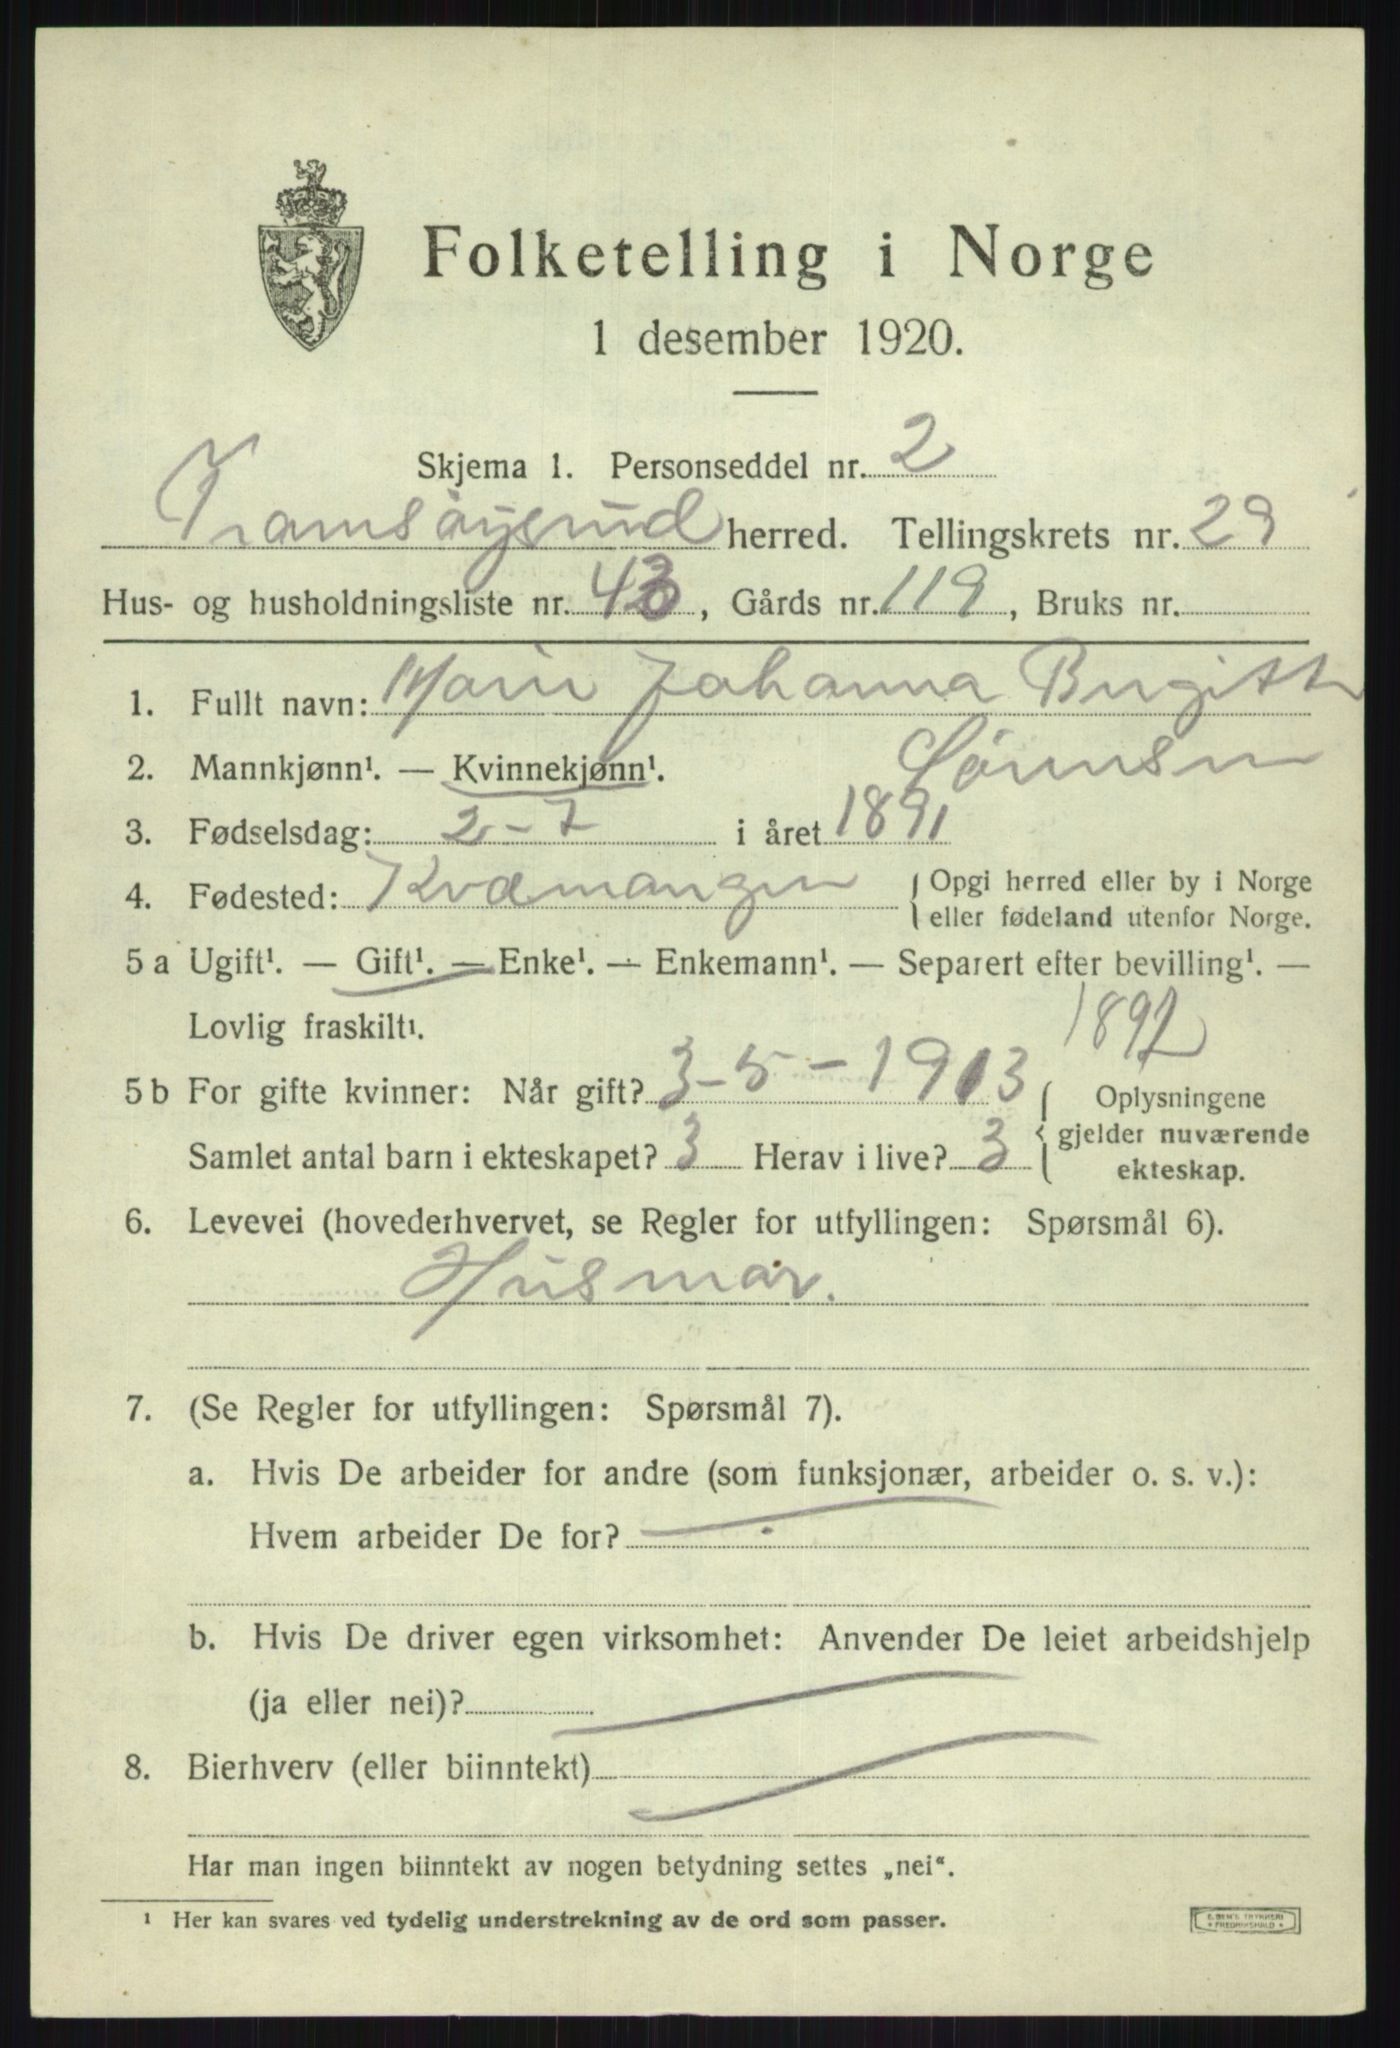 Folketelling i Norge
1 desember 1920.
Skjema 1. Personseddel nr. 2
Tromsøysund herred. Tellingskrets nr. 29
Hus- og husholdningsliste nr. 43, Gårds nr. 119, Bruks nr.
1. Fullt navn: Marie Johanna Birgitte
Sørensen
2. Mannkjønn¹. — Kvinnekjønn¹.
3. Fødselsdag: 2-7 i året 1891
4. Fødested: Kvænangen { Opgi herred eller by i Norge
eller fødeland utenfor Norge.
5 a Ugift¹. — Gift¹. — Enke¹. — Enkemann¹. — Separert efter bevilling¹. —
Lovlig fraskilt¹. 1892
5 b For gifte kvinner: Når gift? 3-5-1913 { Oplysningene
gjelder nuværende
Samlet antal barn i ekteskapet? 3 Herav i live? 3
ekteskap.
6. Levevei (hovederhvervet, se Regler for utfyllingen: Spørsmål 6).
Husmor.
7. (Se Regler for utfyllingen: Spørsmål 7).
a. Hvis De arbeider for andre (som funksjonær, arbeider o. s. v.):
Hvem arbeider De for? —
b. Hvis De driver egen virksomhet: Anvender De leiet arbeidshjelp
(ja eller nei)?
8. Bierhverv (eller biinntekt)
Har man ingen biinntekt av nogen betydning settes „nei“.
¹ Her kan svares ved tydelig understrekning av de ord som passer.
FREDRIKSHALD